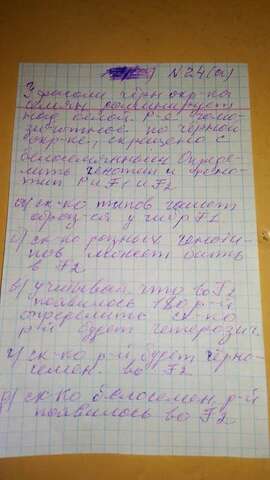 N 24(а)
У фасоли чёрн окр-ка
семян доминирует
над белой. Р-е гомо-
зиготное по чёрной
окр-ке, скрещено с
белосемянным. Опреде-
лить генотип и фено-
тип P и F1 и F2
а) ск-ко типов гамет
образ-ся у гибр F1
б) ск-ко разных геноти-
пов может быть
в F2
в) учитывая что во F2
появилось 180 р-й,
определить ск-ко
р-й будет гетерозиг.
г) ск-ко р-й будет чёрно-
семен. во F2
д) ск-ко белосемен. р-й
появилось во F2